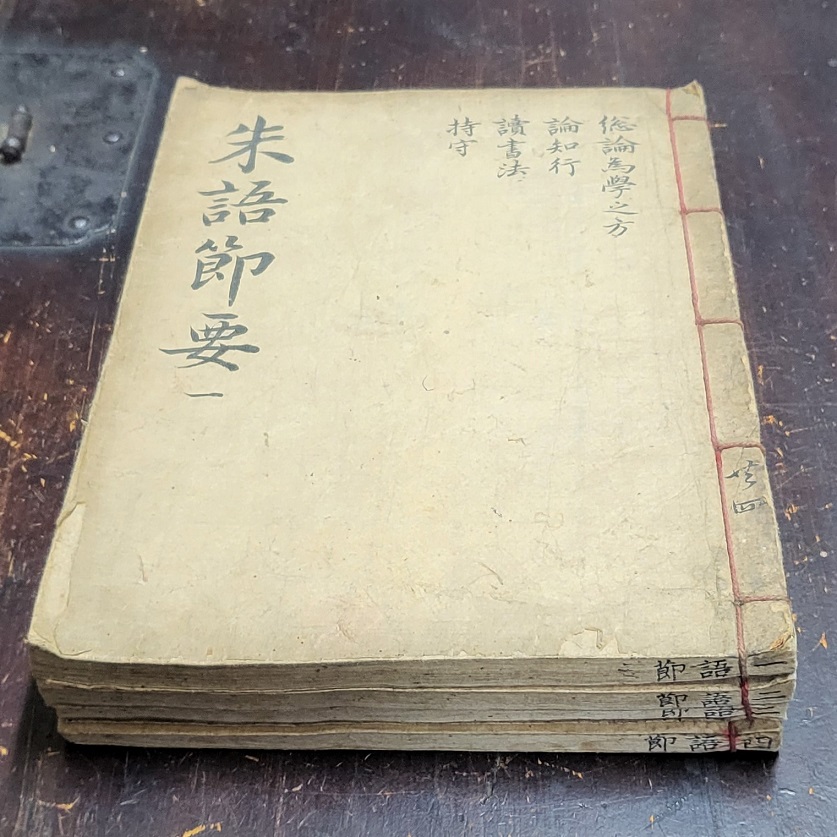 朱語節要 一
緫論為學之方
論知行
讀書法
持守
共四
一 語節
二 語節
三 語節
四 語節